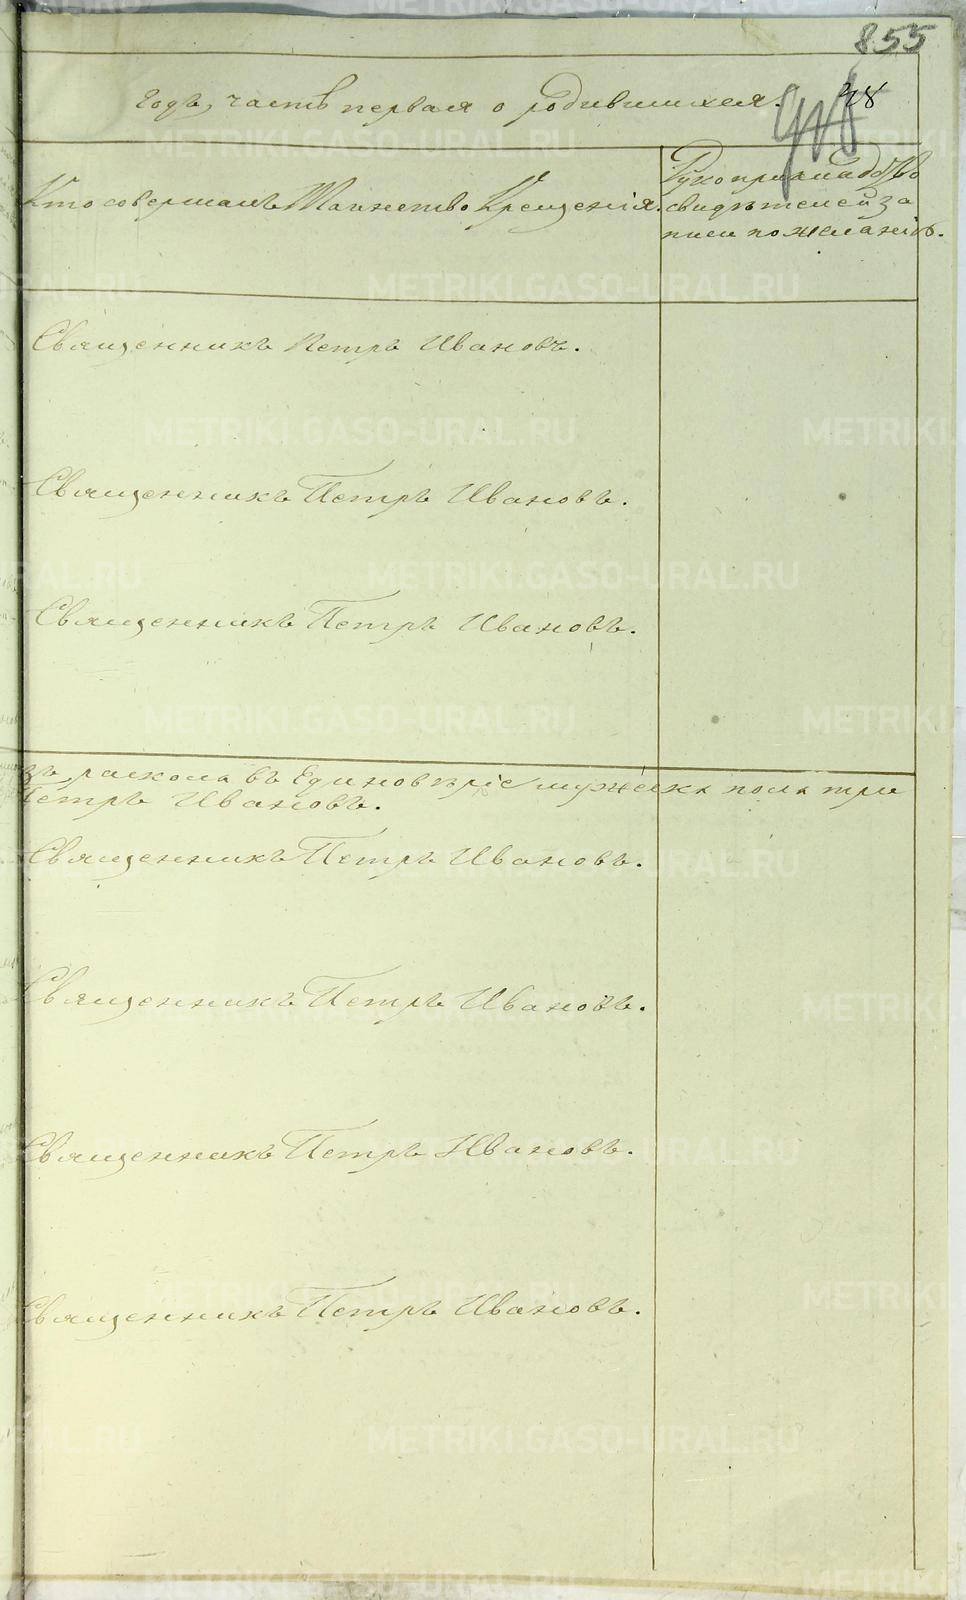 855
годъ, часть первая о родившихся.
Кто совершалъ Таинство Крещенія.
Рукоприкладство
свидѣтелей за
писи по желанію.
Священникъ Петръ Ивановъ.
Священникъ Петръ Ивановъ.
Священникъ Петръ Ивановъ.
раскола въ Единовѣріе мужска пола три
Петръ Ивановъ.
Священникъ Петръ Ивановъ.
Священникъ Петръ Ивановъ.
Священникъ Петръ Ивановъ.
Священникъ Петръ Ивановъ.
METRIKI.GASO-URAL.RU